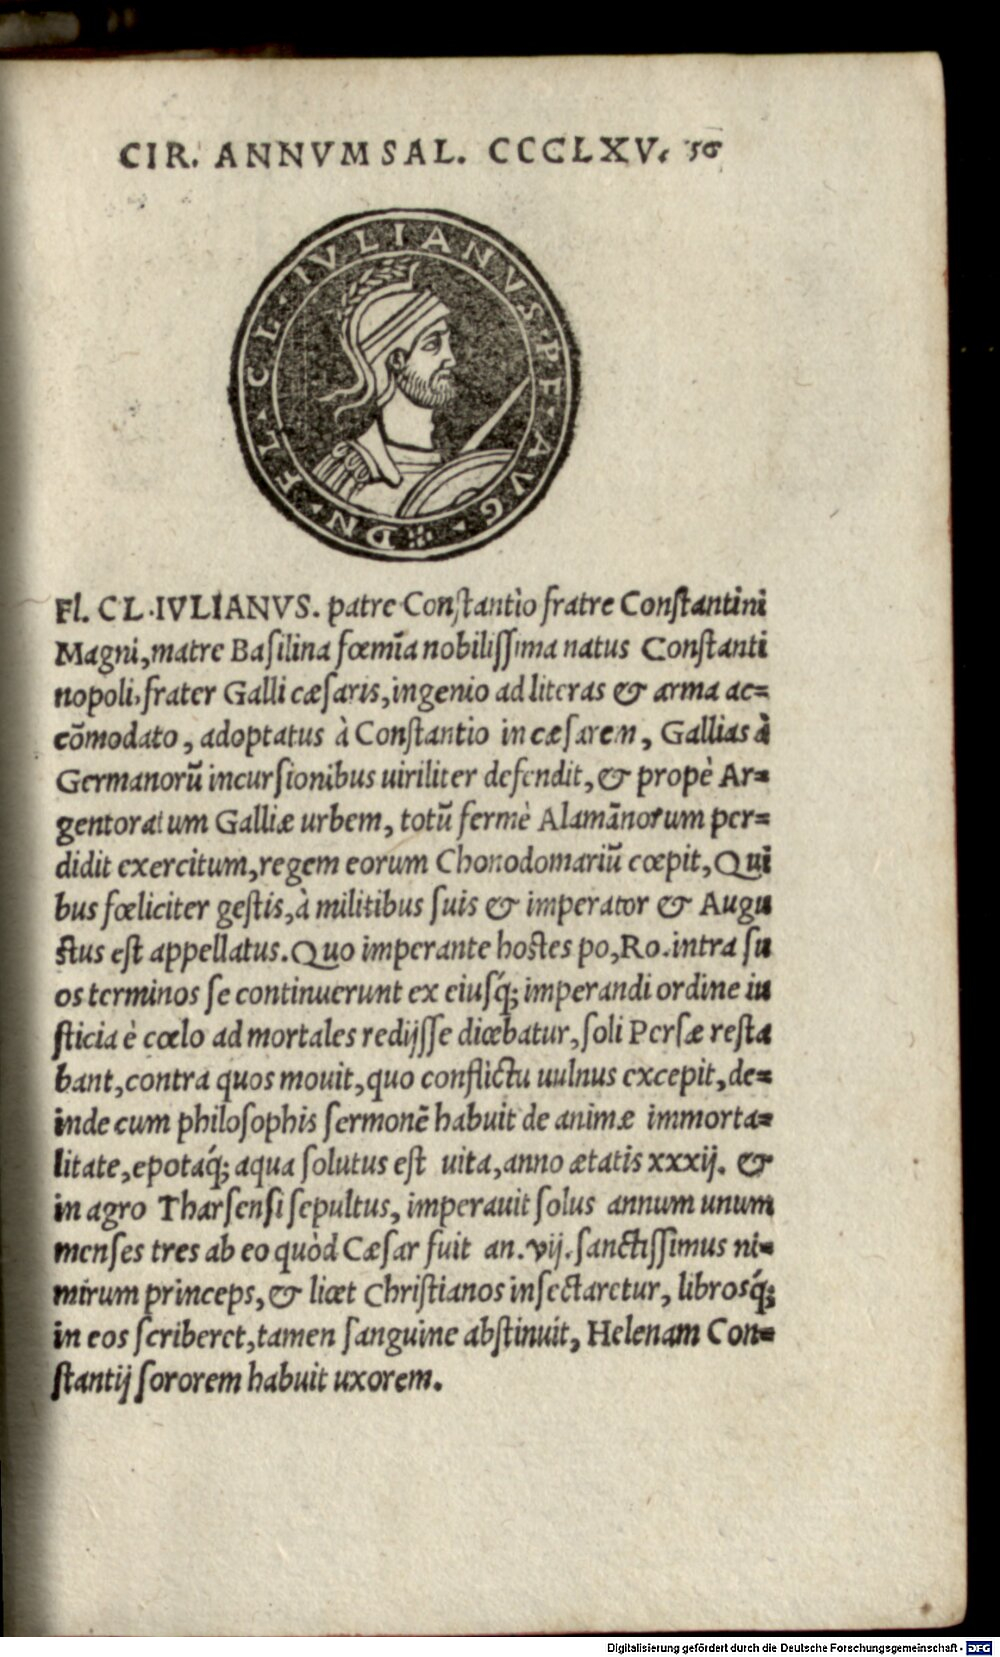 CIR. ANNVM SAL. CCCLXV. 56
DN · FL · CL · IVLIANVS · PF · AVG ·
Fl. CL. IVLIANVS. patre Conſtantio fratre Conſtantini
Magni, matre Baſilina fœmīa nobiliſſima natus Conſtanti
nopoli, frater Galli cæſaris, ingenio ad literas & arma ac=
cōmodato, adoptatus à Conſtantio in cæſarem, Gallias à
Germanorū incurſionibus uiriliter defendit, & propè Ar=
gentoratum Galliæ urbem, totū fermè Alamānorum per=
didit exercitum, regem eorum Chonodomariū cœpit, Qui
bus fœliciter geſtis, à militibus ſuis & imperator & Augu
ſtus eſt appellatus. Quo imperante hoſtes po, Ro. intra ſu
os terminos ſe continuerunt ex eiuſq́; imperandi ordine iu
ſticia è cœlo ad mortales redijſſe dicebatur, ſoli Perſæ reſta
bant, contra quos mouit, quo conflictu uulnus excepit, de=
inde cum philoſophis ſermonē habuit de animæ immorta=
litate, epotaq́; aqua ſolutus eſt uita, anno ætatis xxxij. &
in agro Tharſenſi ſepultus, imperauit ſolus annum unum
menſes tres ab eo quòd Cæſar fuit an. vij. ſanctiſſimus ni=
mirum princeps, & licet Chriſtianos inſectaretur, libroſq́;
in eos ſcriberet, tamen ſanguine abſtinuit, Helenam Con=
ſtantij ſororem habuit uxorem.
Digitalisierung gefördert durch die Deutsche Forschungsgemeinschaft - DFG